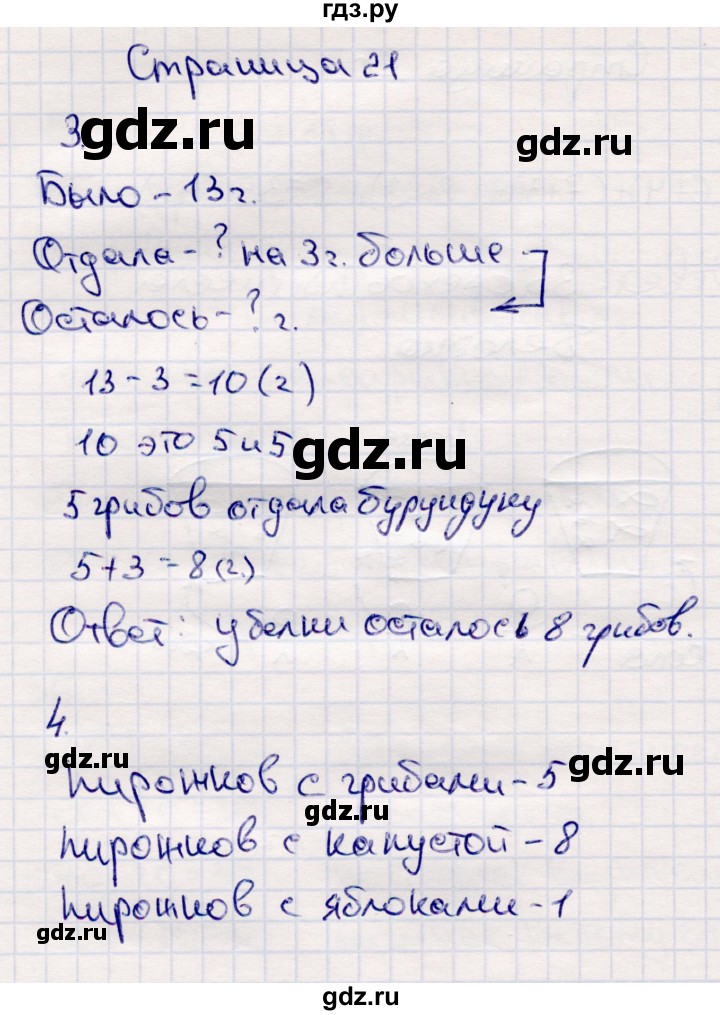 гдз.ру
Страница 21
3.
gdz.ru
gdz.ru
Было - 13 г.
Отдала - ? на 3 г. больше
Осталось - ? г.
13 - 3 = 10 (г)
10 это 5 и 5
gdz.ru
5 грибов отдала бурундуку
5 + 3 = 8 (г.)
Ответ: у белки осталось 8 грибов.
4.
gdz.ru
gdz.ru
пирожков с грибами - 5
gdz.ru
пирожков с капустой - 8
пирожков с яблоками - 1
gdz.ru
gdz.ru
gdz.ru